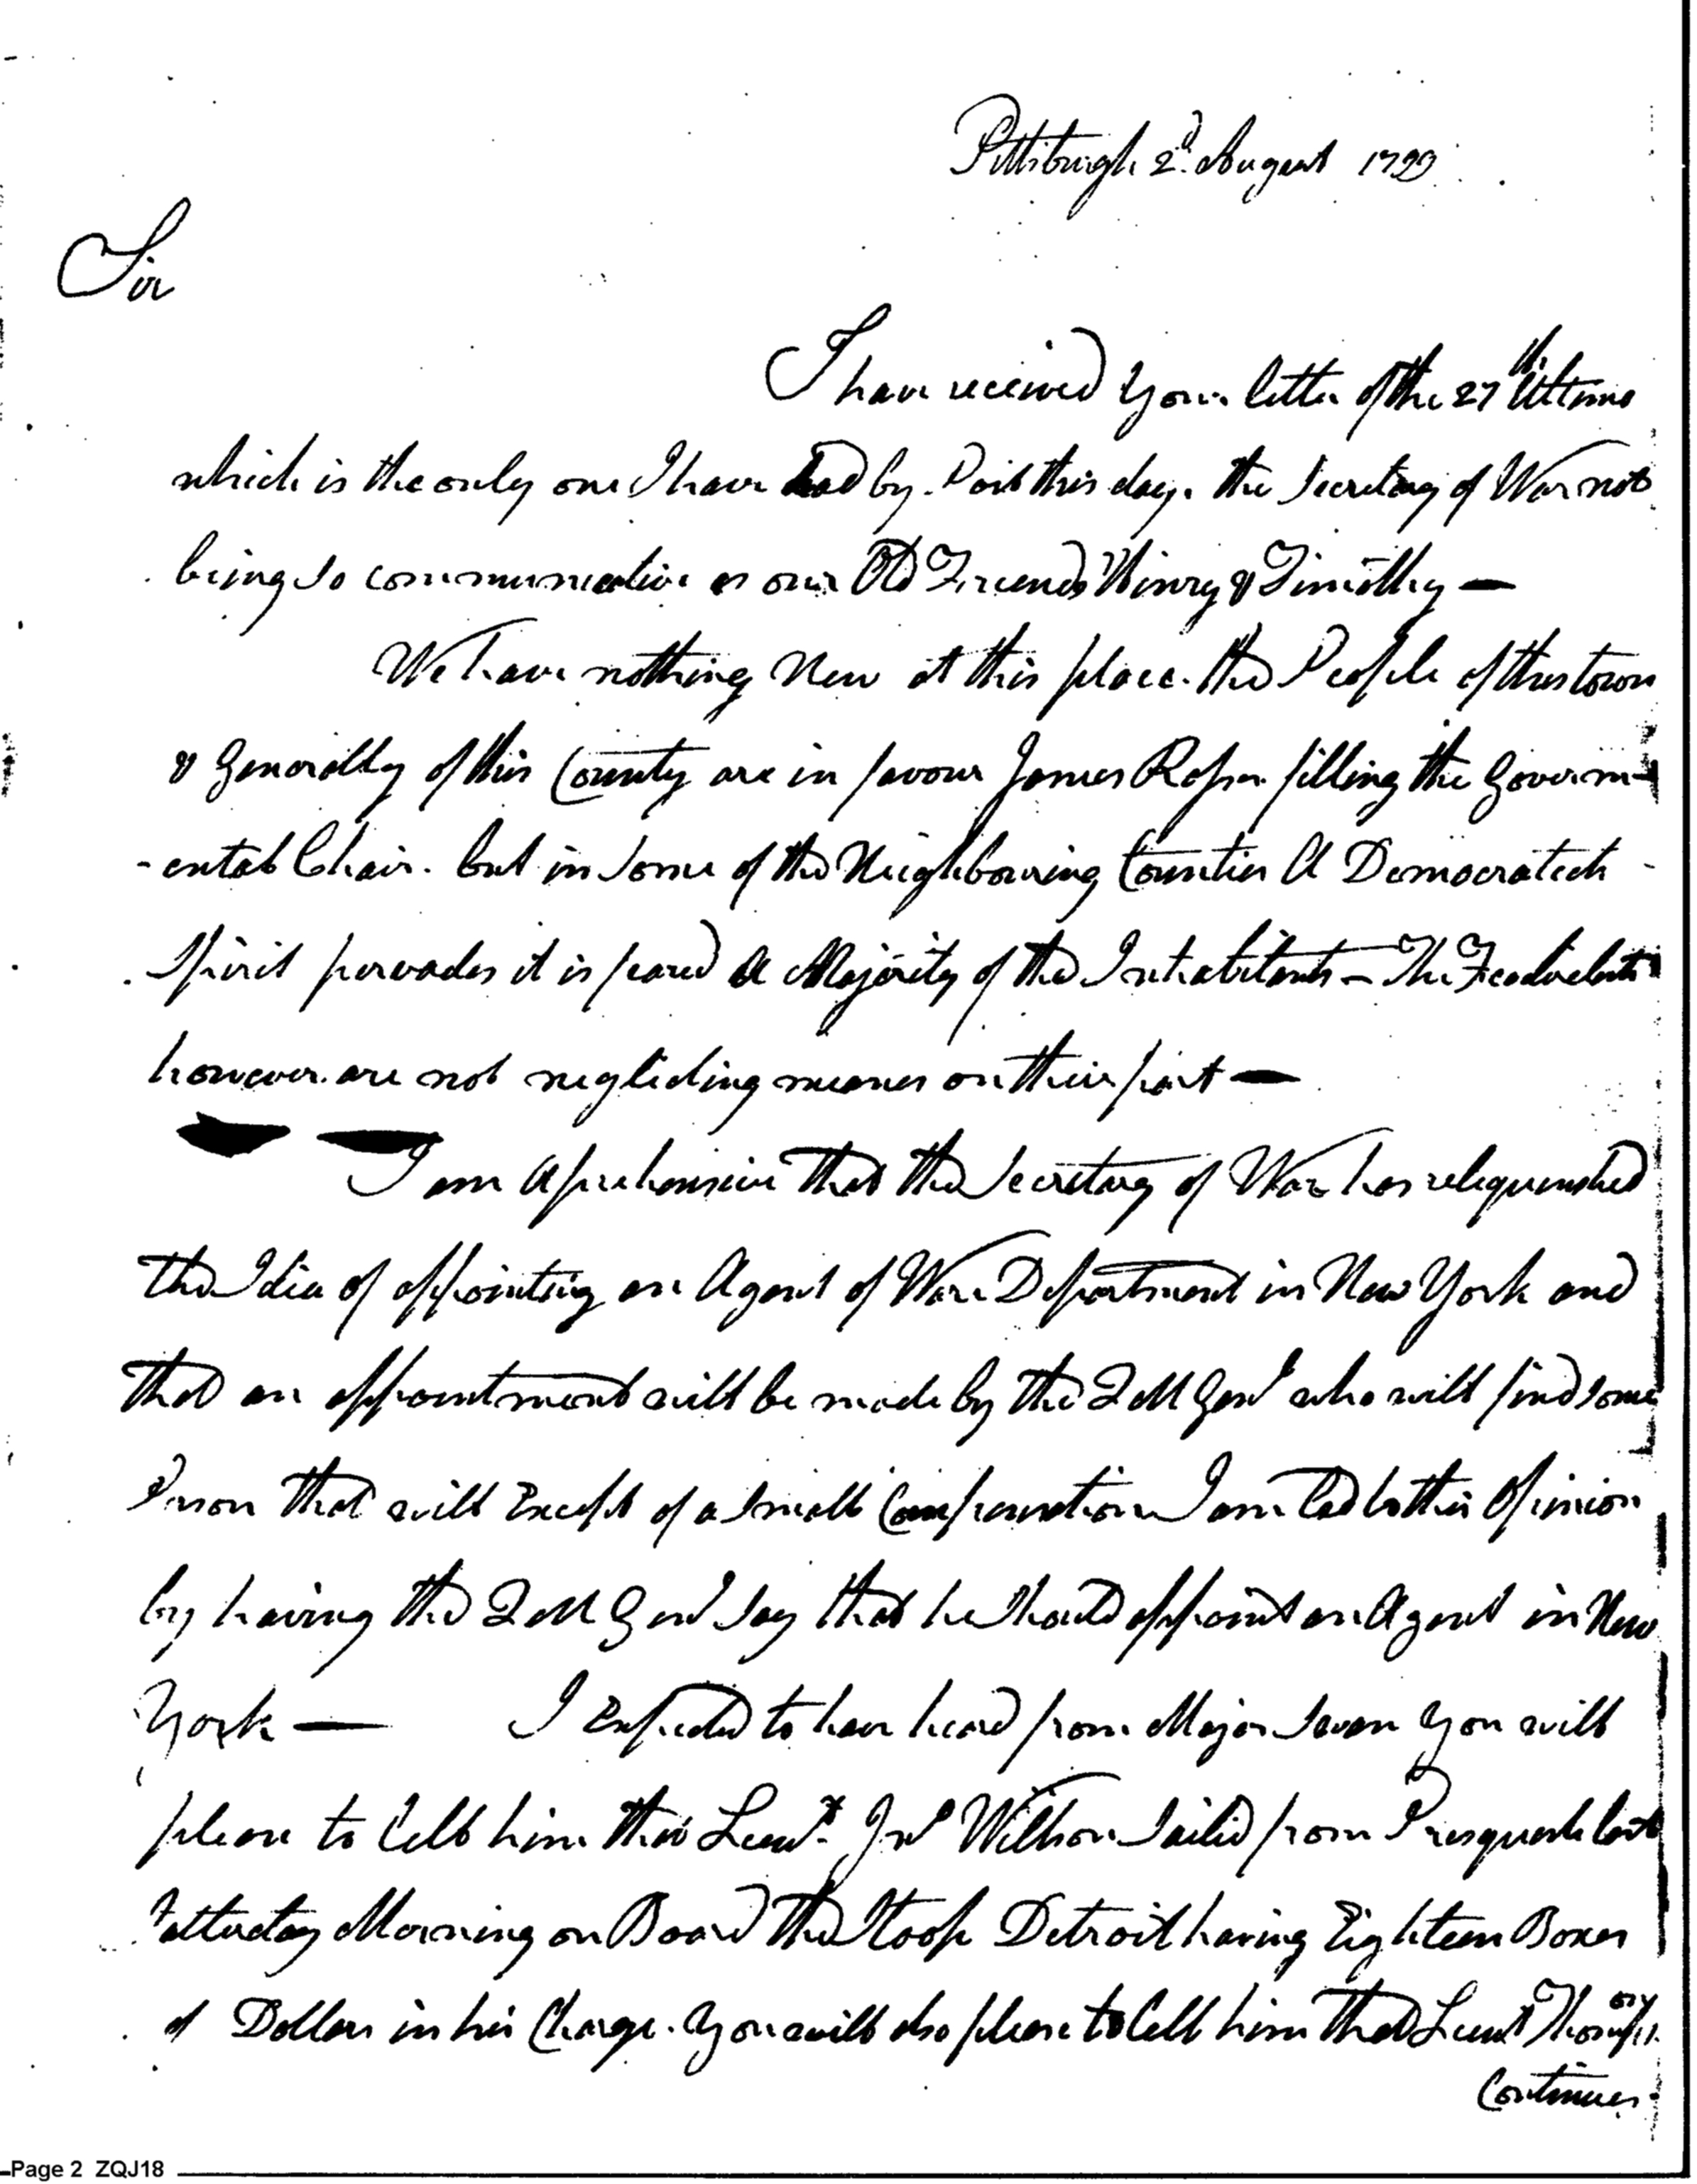 Pittsburgh 2d. August 1799
Sir
I have received your letter of the 27th Ultimo
which is the only one I have had by Post this day. the Secretary of War not
being so communicative as our Old Friends Henry & Timothy —
We have nothing New at this place. the People of this town
& Generally of this County are in favour James Ross filling the Governm-
-ental Chair. but in some of the Neighbouring Counties A Democratick
Spirit pervades it is feared a Majority of the Inhabitants — The Feadrelests
however are not neglicting means on their part —
I am Aprehensive that the Secretary of War has reliquenshed
the Idea of appointing an Agent of War Department in New York and
that an appointment will be made by the Q M Genl who will find some
Person that will Except of a small Compensation I am led to this Opinion
by having the Q M Genl say that he should appoint an Agent in New
York — I Expected to have heard from Major you will
please to tell him that Lieut. Jno Wilson Sailed from Presqueile last
Satturday Morning on Board the Sloop Detroit having Eighteen Boxes
of Dollars in his Charge. You will also please to tell him that Lieut
Continues
Page 2 ZQJ18